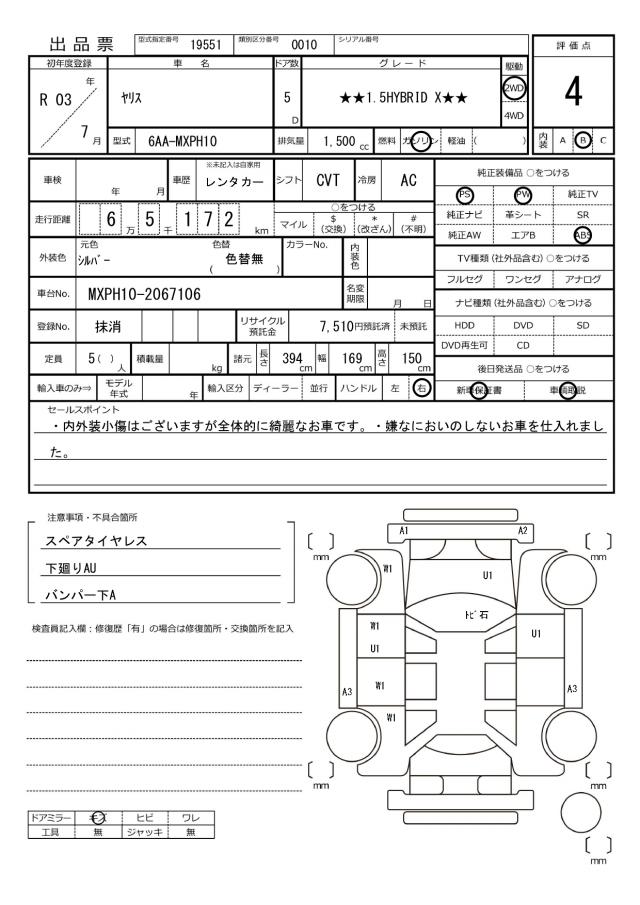 出品票
型式指定番号 19551 類別区分番号 0010 シリアル番号
評価点
初年度登録 車名 ドア数 グレード 駆動
R 03 年 7 月 ﾔﾘｽ 5 D ★★1.5HYBRID X★★ 2WD 4WD
4
型式 6AA-MXPH10 排気量 1,500 cc 燃料 ガソリン 軽油 ( )
内装 A B C
車検 年 月 車歴 ※未記入は自家用 レンタカー シフト CVT 冷房 AC
純正装備品 ○をつける
PS PW 純正TV
純正ナビ 革シート SR
純正AW エアB ABS
走行距離 6 万 5 千 1 7 2 km
○をつける
マイル $ (交換) * (改ざん) # (不明)
外装色 元色 ｼﾙﾊﾞｰ 色替 ( 色替無 ) カラーNo. 内装色
TV種類 (社外品含む) ○をつける
フルセグ ワンセグ アナログ
車台No. MXPH10-2067106 名変期限 月 日
ナビ種類 (社外品含む) ○をつける
HDD DVD SD
DVD再生可 CD
登録No. 抹消 リサイクル預託金 7,510円預託済 未預託
定員 5 ( ) 人 積載量 kg 諸元 長さ 394 cm 幅 169 cm 高さ 150 cm
後日発送品 ○をつける
新車保証書 車輌取説
輸入車のみ⇒ モデル年式 年 輸入区分 ディーラー 並行 ハンドル 左 右
セールスポイント
・内外装小傷はございますが全体的に綺麗なお車です。・嫌なにおいのしないお車を仕入れまし
た。
注意事項・不具合箇所
スペアタイヤレス
下廻りAU
バンパー下A
検査員記入欄：修復歴「有」の場合は修復箇所・交換箇所を記入
A1 A2
mm mm
W1 U1
ﾄﾋﾞ石
W1 U1
U1
A3 W1 A3
W1
mm mm
mm
ドアミラー キズ ヒビ ワレ
工具 無 ジャッキ 無